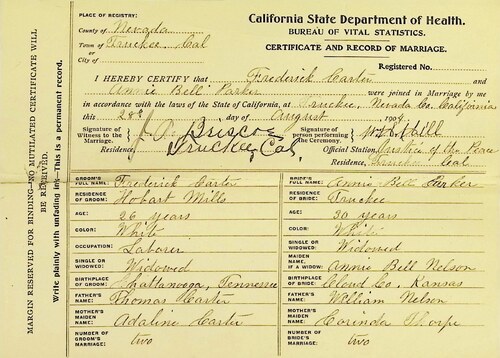 PLACE OF REGISTRY:
California State Department of Health.
County of Nevada
BUREAU OF VITAL STATISTICS.
Town of Truckee Cal
or
City of
CERTIFICATE AND RECORD OF MARRIAGE.
Registered No.
I HEREBY CERTIFY that Frederick Carter and
Annie Bell Parker were joined in Marriage by me
in accordance with the laws of the State of California, at Truckee, Nevada Co. California
this 28th day of August 1904
Signature of Witness to the Marriage. J. A. Briscoe
Residence, Truckee, Cal,
Signature of person performing the Ceremony. Hill
Official Station, Justice of the Peace
Residence, Truckee Cal
GROOM'S FULL NAME: Frederick Carter
RESIDENCE OF GROOM: Hobart Mills
AGE: 26 years
COLOR: White
OCCUPATION: Laborer
SINGLE OR WIDOWED: Widowed
BIRTHPLACE OF GROOM: Chattanooga, Tennessee
FATHER'S NAME: Thomas Carter
MOTHER'S MAIDEN NAME: Adaline Carter
NUMBER OF GROOM'S MARRIAGE: two
BRIDE'S FULL NAME: Annie Bell Parker
RESIDENCE OF BRIDE: Truckee
AGE: 30 years
COLOR: White
SINGLE OR WIDOWED: Widowed
MAIDEN NAME, IF A WIDOW: Annie Bell Nelson
BIRTHPLACE OF BRIDE: Cloud Co. Kansas
FATHER'S NAME: William Nelson
MOTHER'S MAIDEN NAME: Corinda Thorpe
NUMBER OF BRIDE'S MARRIAGE: two
MARGIN RESERVED FOR BINDING—NO MUTILATED CERTIFICATE WILL BE RECEIVED.
Write plainly with unfading ink—This is a permanent record.